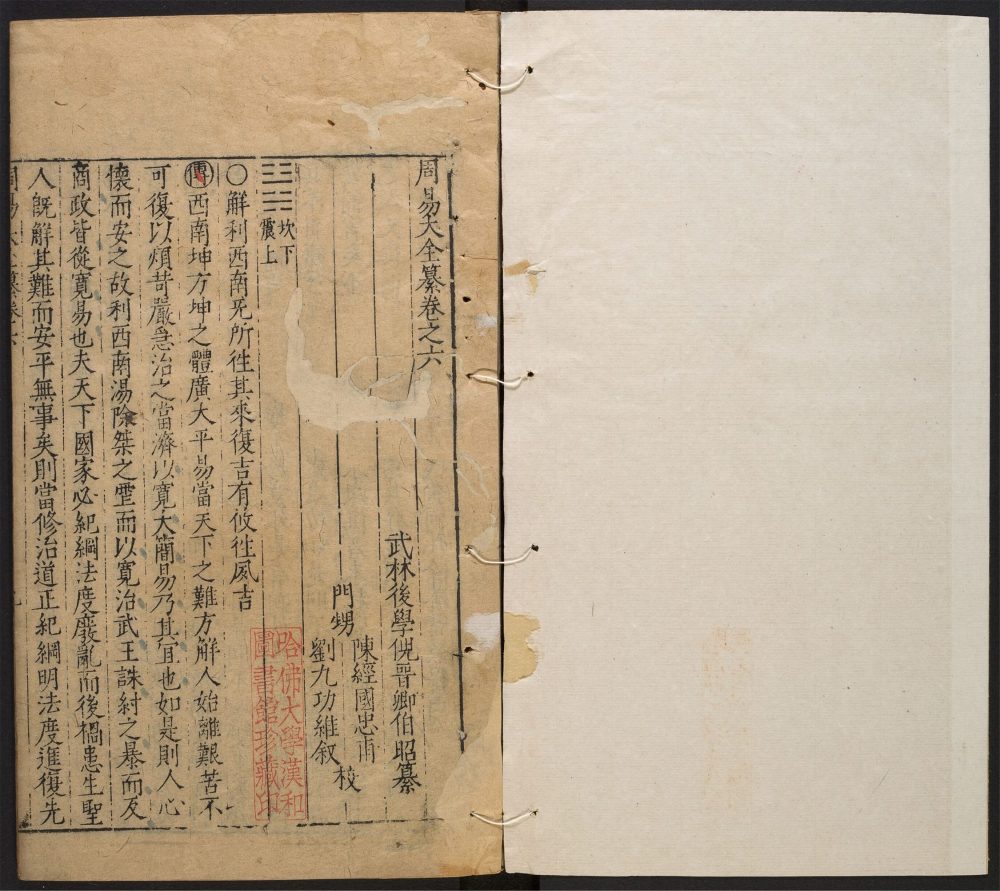 周易大全纂卷之六
武林後學倪晉卿伯昭纂
門甥
陳經國忠甫
劉九功維叙
校
坎下
震上
○解利西南旡所徃其來復吉有攸徃夙吉
傳西南坤方坤之體廣大平易當天下之難方解人始離艱苦不
可復以煩苛嚴急治之當濟以寛大簡易乃其宜也如是則人心
懷而安之故利西南湯除桀之虐而以寛治武王誅紂之暴而反
商政皆從寛易也夫天下國家必紀綱法度廢亂而後禍患生聖
人既解其難而安平無事矣則當修治道正紀綱明法度進復先
周易大全纂卷六
哈佛大學漢和
圖書館珍藏印